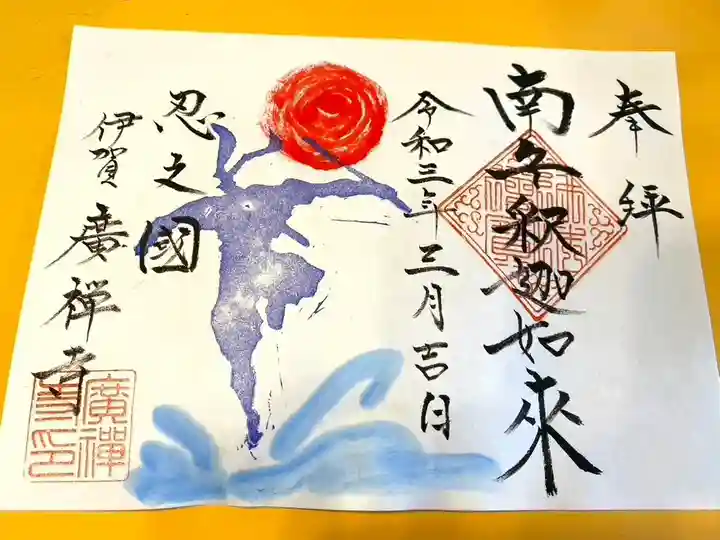 奉拝
南無釈迦如來
令和三年三月吉日
忍之國
伊賀 廣禅寺
廣禅
寺印